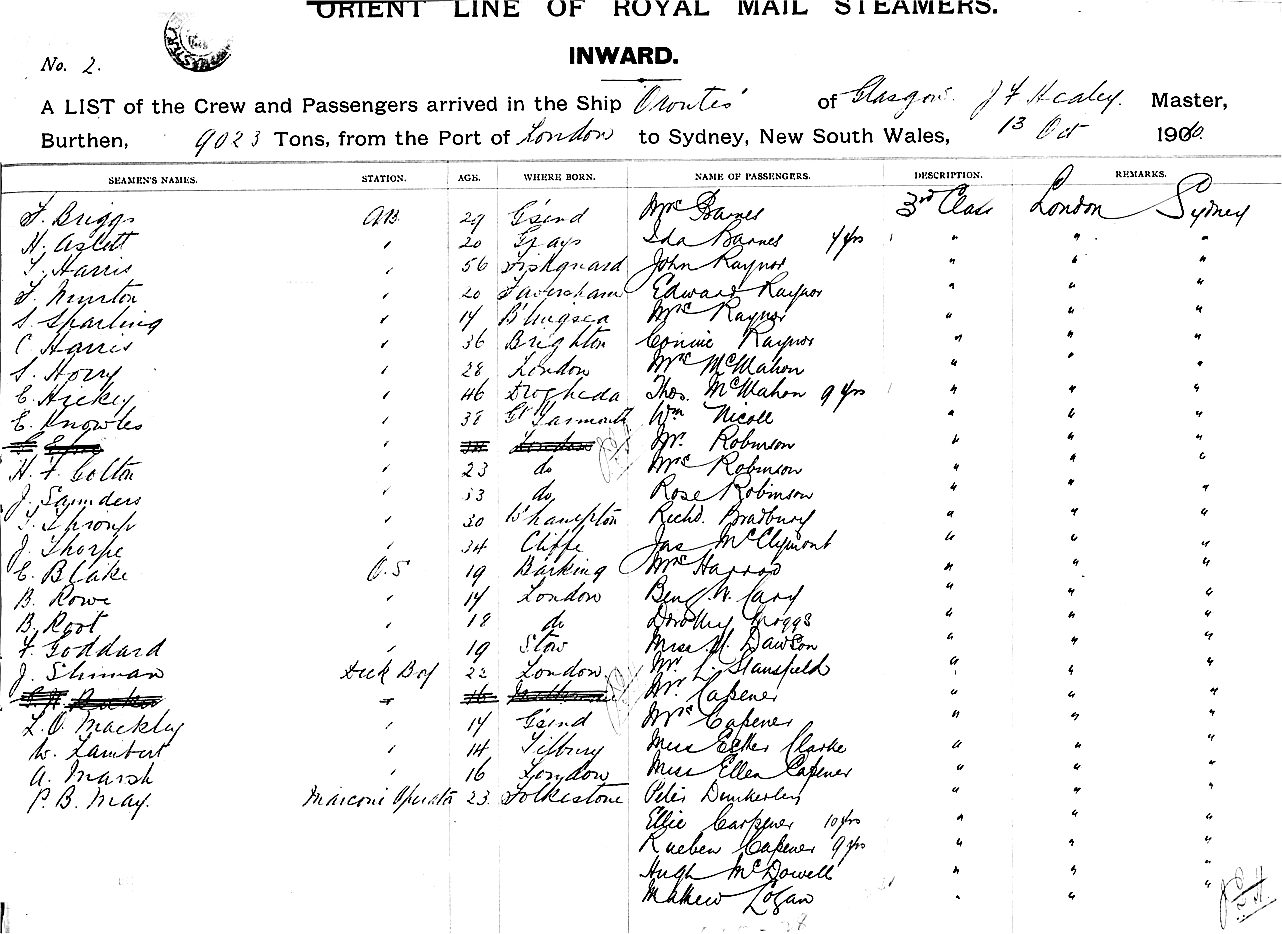 ORIENT LINE OF ROYAL MAIL STEAMERS.
No. 2.
INWARD.
A LIST of the Crew and Passengers arrived in the Ship Orontes of Glasgow. J F Healey. Master,
Burthen, 9023 Tons, from the Port of London to Sydney, New South Wales, 13 Oct 1910.
SEAMEN'S NAMES. STATION. AGE. WHERE BORN. NAME OF PASSENGERS. DESCRIPTION. REMARKS.
F. Briggs AB 29 G'send Mrs Barnes 3rd Class London Sydney
H. Aslett " 20 Grays Ida Barnes 4 yrs " " "
T. Harris " 56 Fishguard John Raynor " " "
F. Newton " 20 Faversham Edward Raynor " " "
S. Sparling " 17 B'lingsea Mrs Raynor " " "
C. Harris " 36 Brighton Connie Raynor " " "
S. Horry " 28 London Mrs McMahon " " "
E. Hickey " 46 Drogheda Thos. McMahon 9 yrs " " "
E. Knowles " 38 Gt Yarmouth Wm Nicoll " " "
" Mr. Robinson " " "
H. F. Colton " 23 do Mrs Robinson " "
J. Saunders " 33 do Rose Robinson " " "
T. " 30 W'hampton Richd. Bradbury " " "
J. Thorpe " 34 Cliffe Jas McClymont " " "
E. Blake O.S 19 Barking Mrs Harrop " " "
B. Rowe " 17 London Benj. W. Cary " " "
B. Root " 18 do Dorothy Noggs " " "
F. Goddard " 19 Stow Miss M. Dawson " " "
J. Sliman Deck Boy 22 London Mr. L. Stansfield " " "
" 16 Mr. Capener " " "
L. O. Mackley " 17 G'send Mrs Capener " " "
W. Lambert " 14 Tilbury Miss Esther Clarke " " "
A. Marsh " 16 London Miss Ellen Capener " " "
P. B. May. Marconi Operator 23 Folkestone Peter Dunkerley " " "
Ellie Carpener 10 yrs " " "
Rueben Capener 9 yrs " " "
Hugh McDowell " " "
Mathew Logan " " "